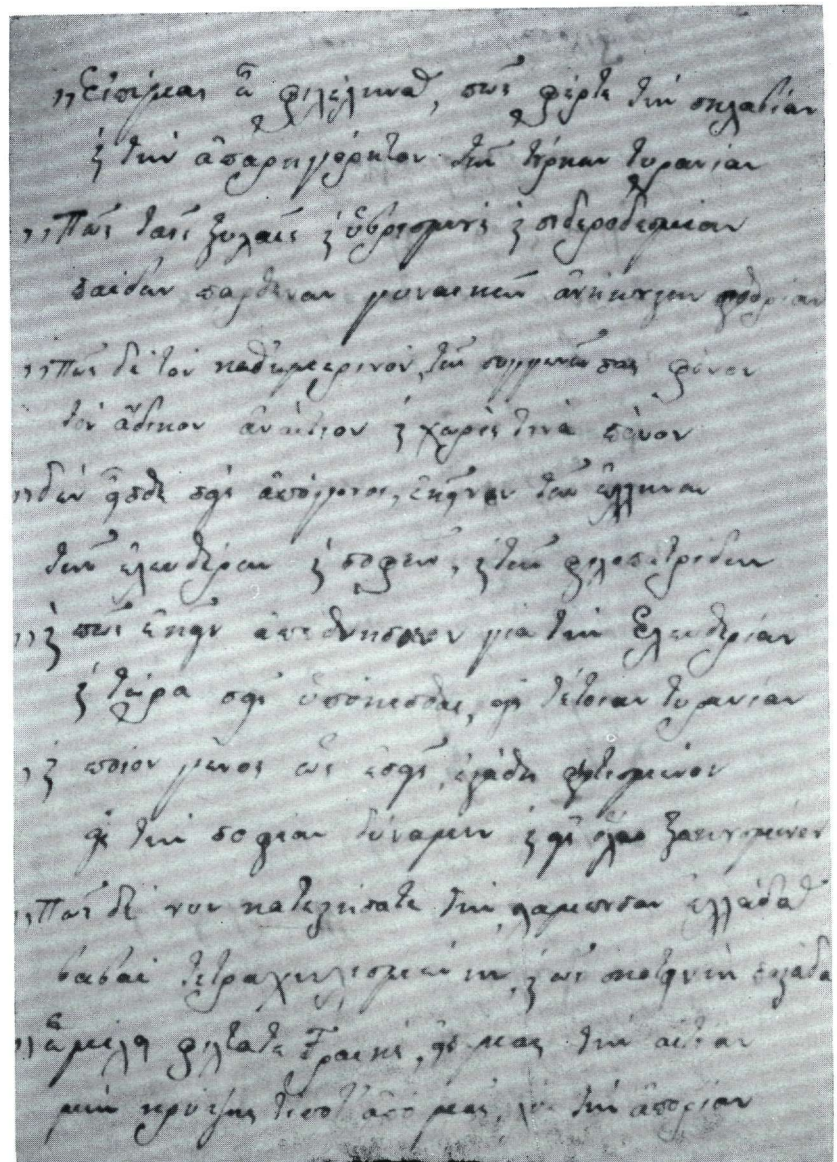 ,,Εἰπέ μας ὦ φιλέλληνα, πῶς φέρτε τὴν σκλαβίαν
ϗ τὴν ἀπαρηγόρητον τῶν τȣ́ρκων τυρανίαν
,,Πῶς ταῖς ξυλαῖς ϗ ὑβρισμȣ̀ς ϗ σιδεροδεσμίαν
παίδων παρθένων γυναικῶν ἀνήκȣστον φθορίαν
,,Πῶς δὲ τὸν καθημερινὸν, τῶν συγγενῶν σας φόνον
τὸν ἄδικον ἀναίτιον ϗ χωρὶς τινὰ πόνον
,,δὲν εἶσθε σεῖς ἀπόγονοι, ἐκείνων τῶν ἑλλήνων
τῶν ἐλευθέρων ϗ σοφῶν, ϗ τῶν φιλοπατρίδων
,,ϗ πῶς ἐκεῖν ἀπεθνησκον γιὰ τὴν ἐλευθερίαν
ϗ τώρα σεῖς ὑπόκεισθαι, εἰς τέτοιαν τυρανίαν
,,ϗ ποῖον γένος ὡς ἐσεῖς, ἐστάθη φωτισμένον
εἰς τὴν σοφίαν δύναμιν ϗ εἰς ὅλα ξακȣσμένον
,,Πῶς δὲ νῦν κατεστήσατε τὴν λάμπουσαν ἑλλάδα
βαβαὶ ϗ ὡς σκοτεινὴν
,,ὦμίλει φίλτατε Γραικὲ, εἰπέ μας τὴν αἰτίαν
μὴν κρύπτῃς τίποτ' ἀπό μας, λύε τὴν ἀπορίαν